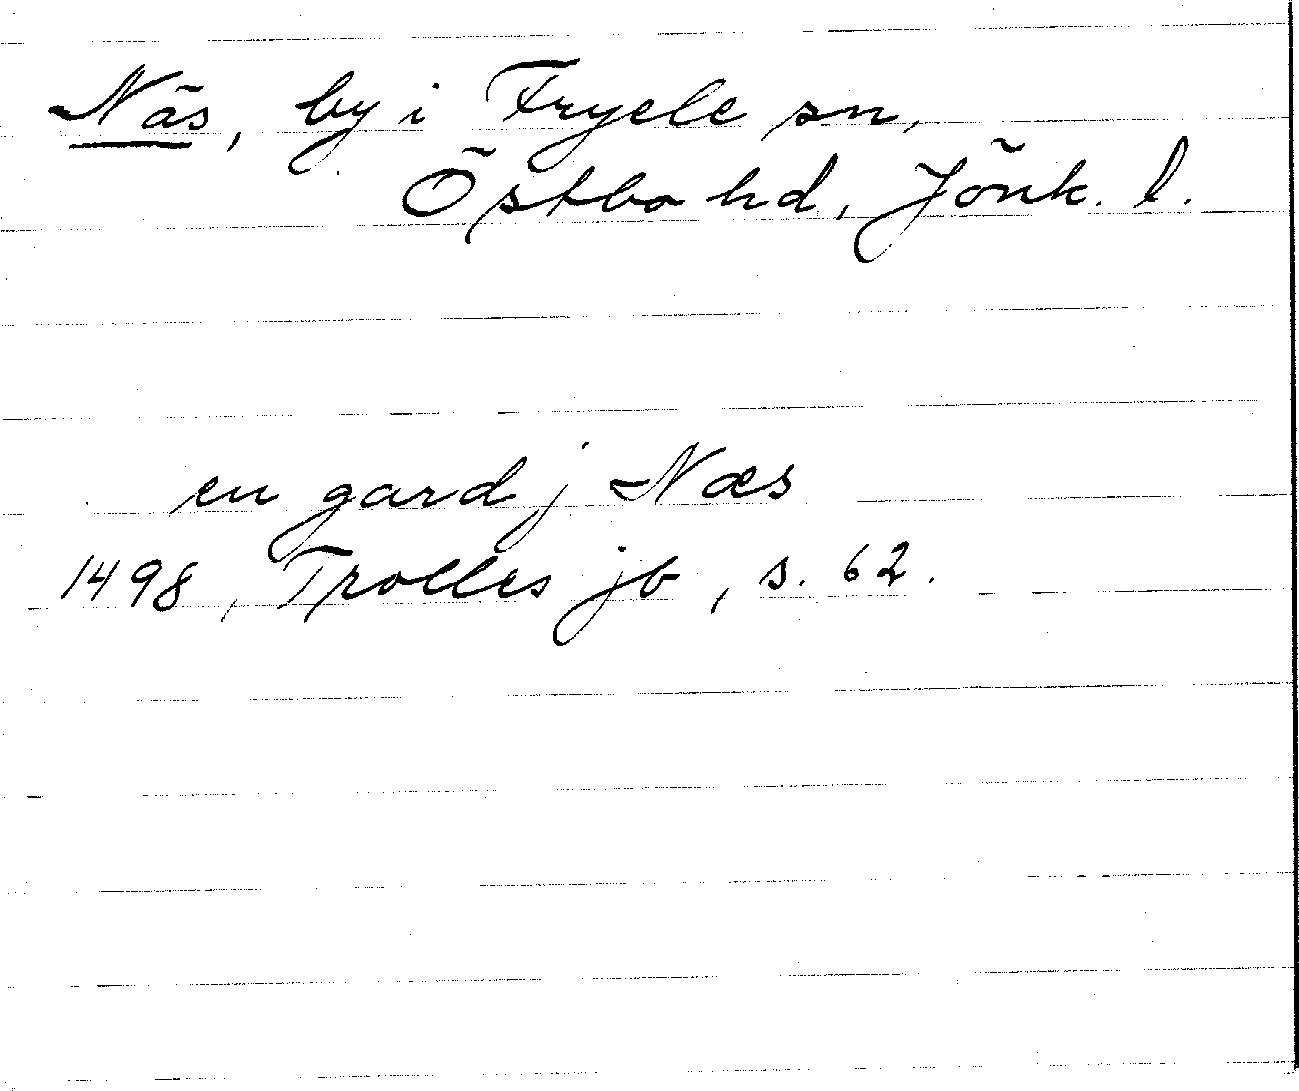 Näs, by i Fryele sn,
Östbo hd, Jönk. l.
en gard j Næs
1498, Trolles jb, s. 62.